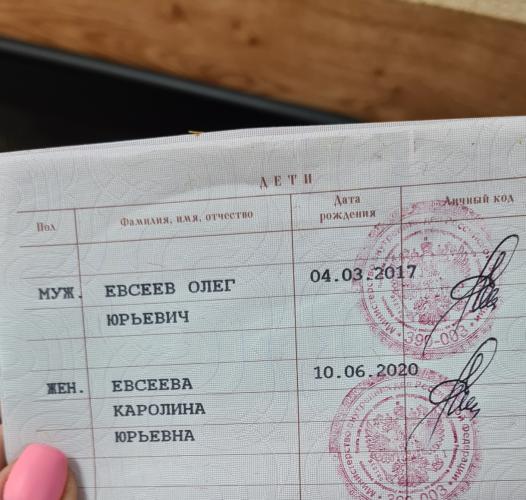 ДЕТИ
Пол Фамилия, имя, отчество Дата рождения Личный код
МУЖ. ЕВСЕЕВ ОЛЕГ 04.03.2017
ЮРЬЕВИЧ
390-003
ЖЕН. ЕВСЕЕВА 10.06.2020
КАРОЛИНА
ЮРЬЕВНА